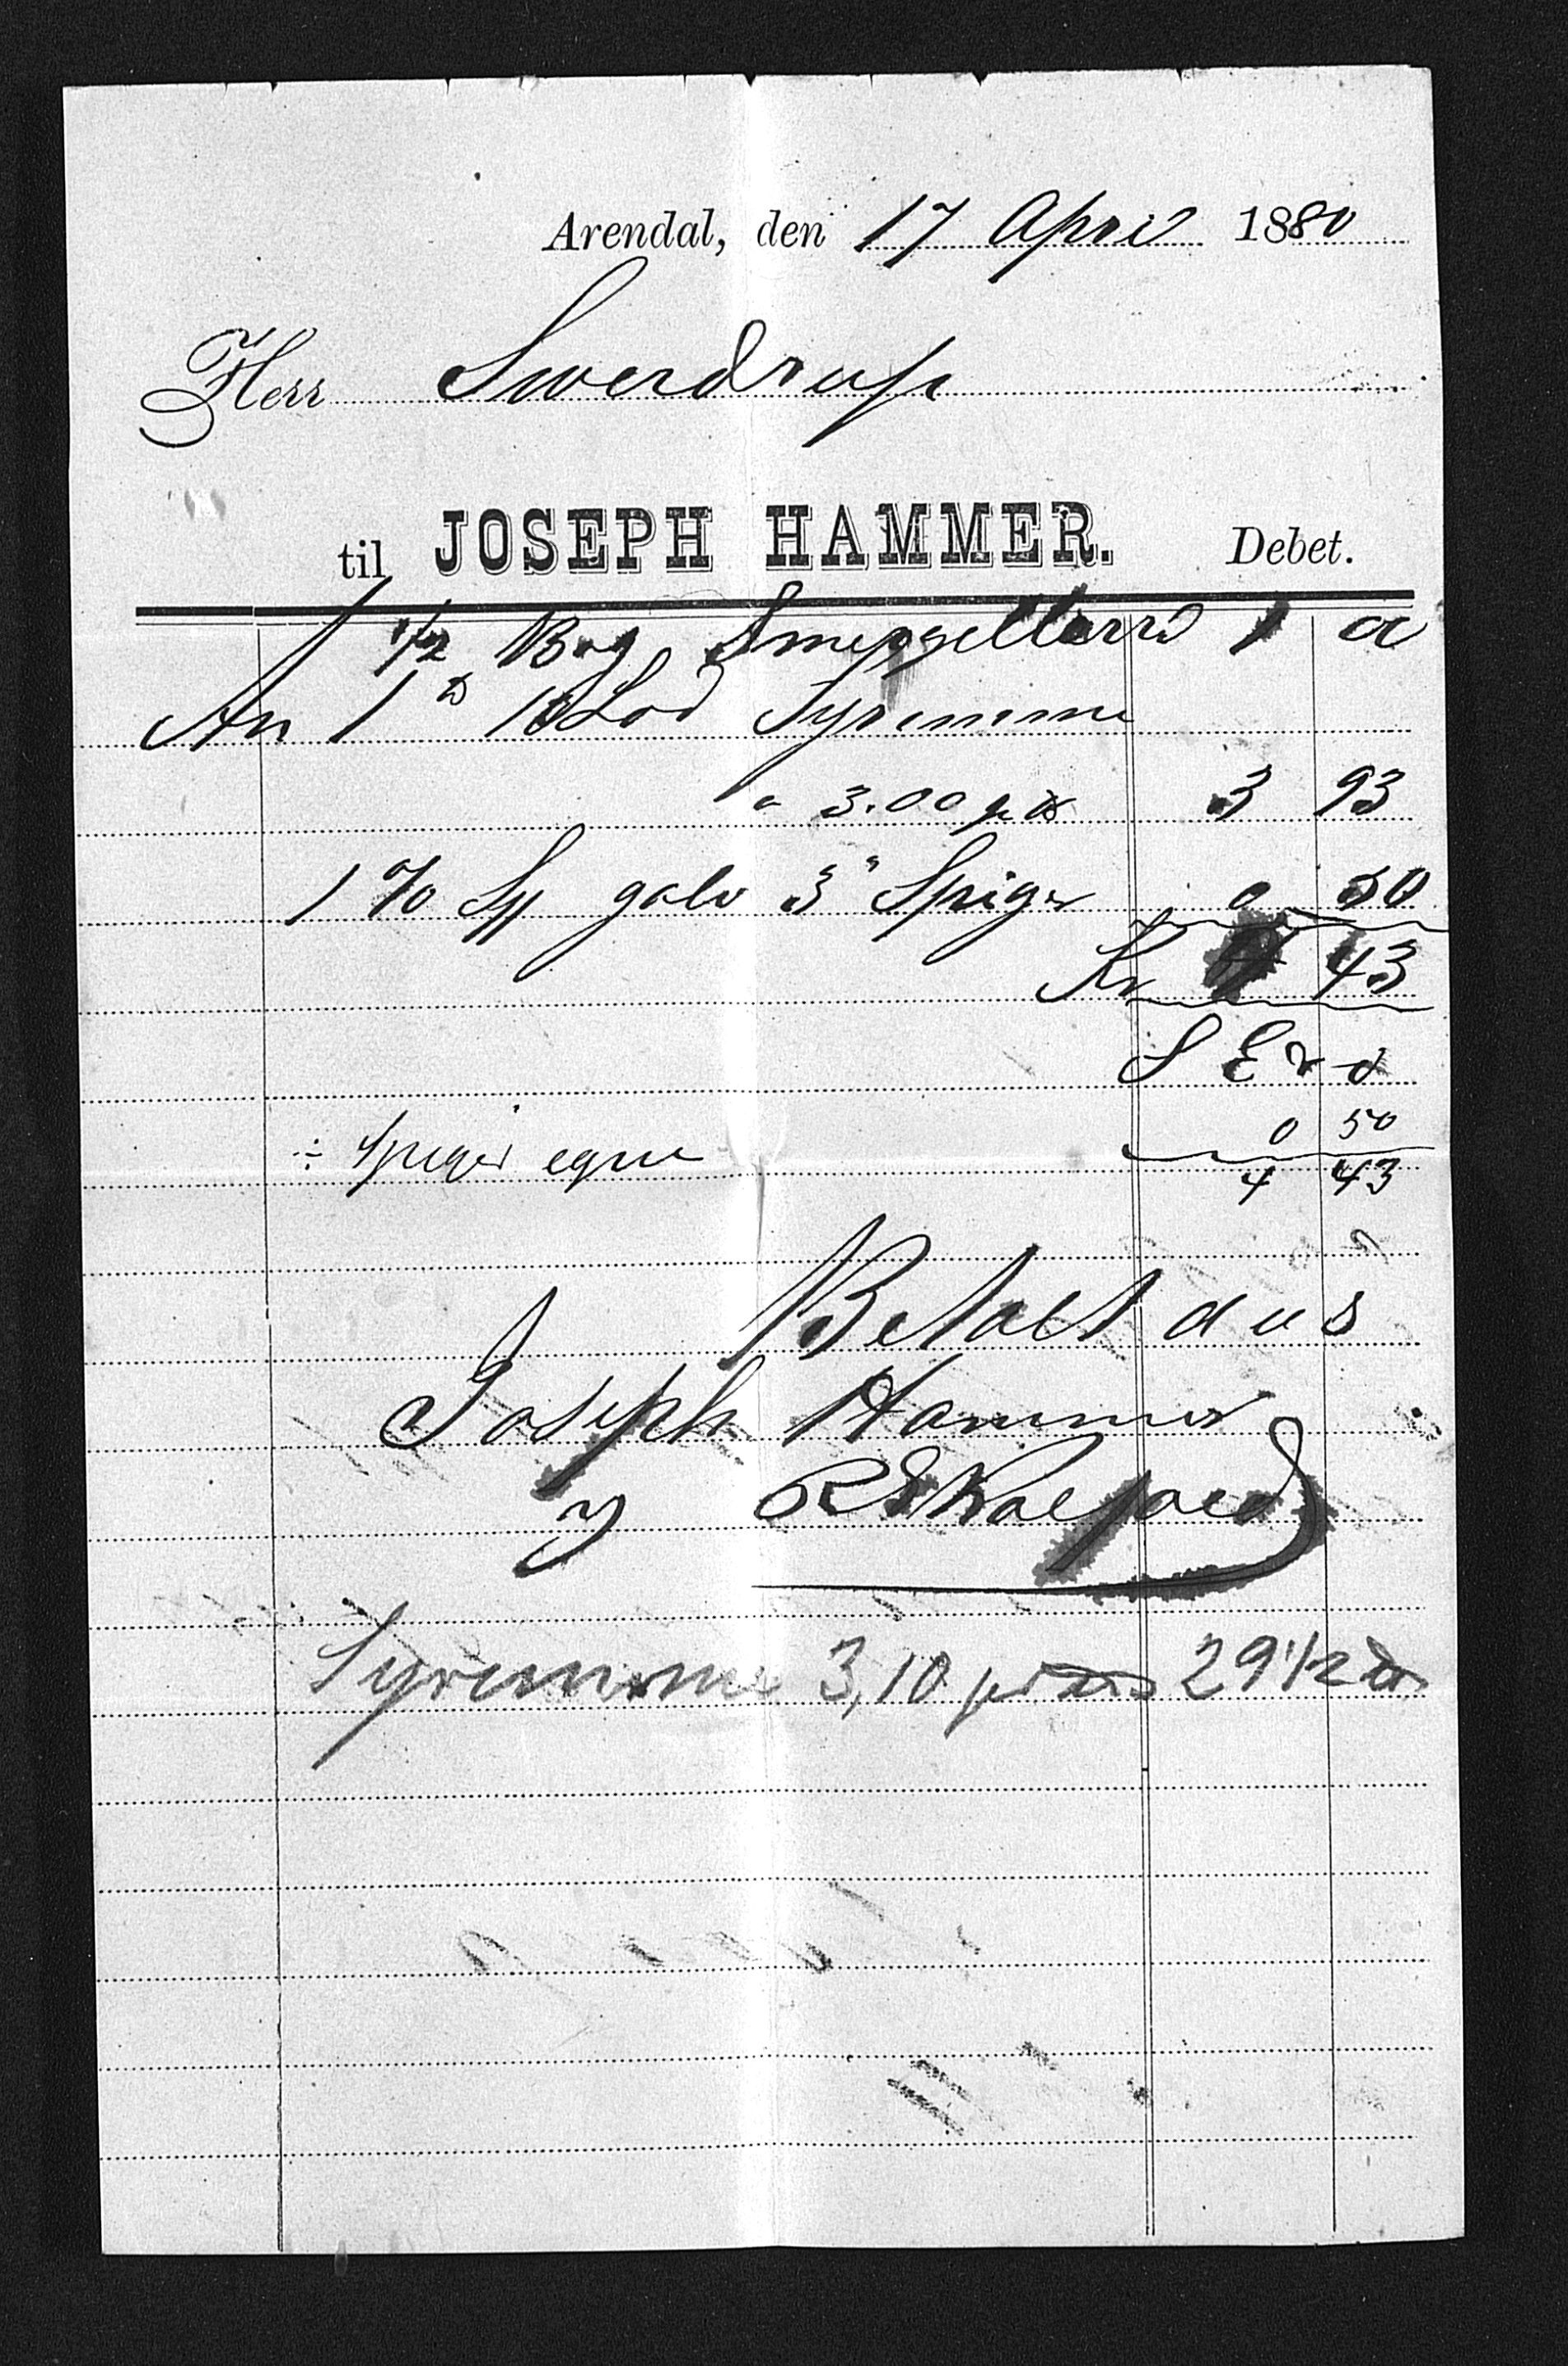 Arendal, den 17 April 1880
Herr Swerdrup
til JOSEPH HAMMER. Debet.
1/2 Bog Smergellærred 1 a
An 1 ℔ 10 Lod Syremme
a 3.00 p ℔ 3 93
1 % Sp galv 3" Spiger 0 50
Kr 43
S E & O
0 50
÷ Spiger egne 4 43
Betalt
Joseph Hammer
Syremme 3,10 29 1/2